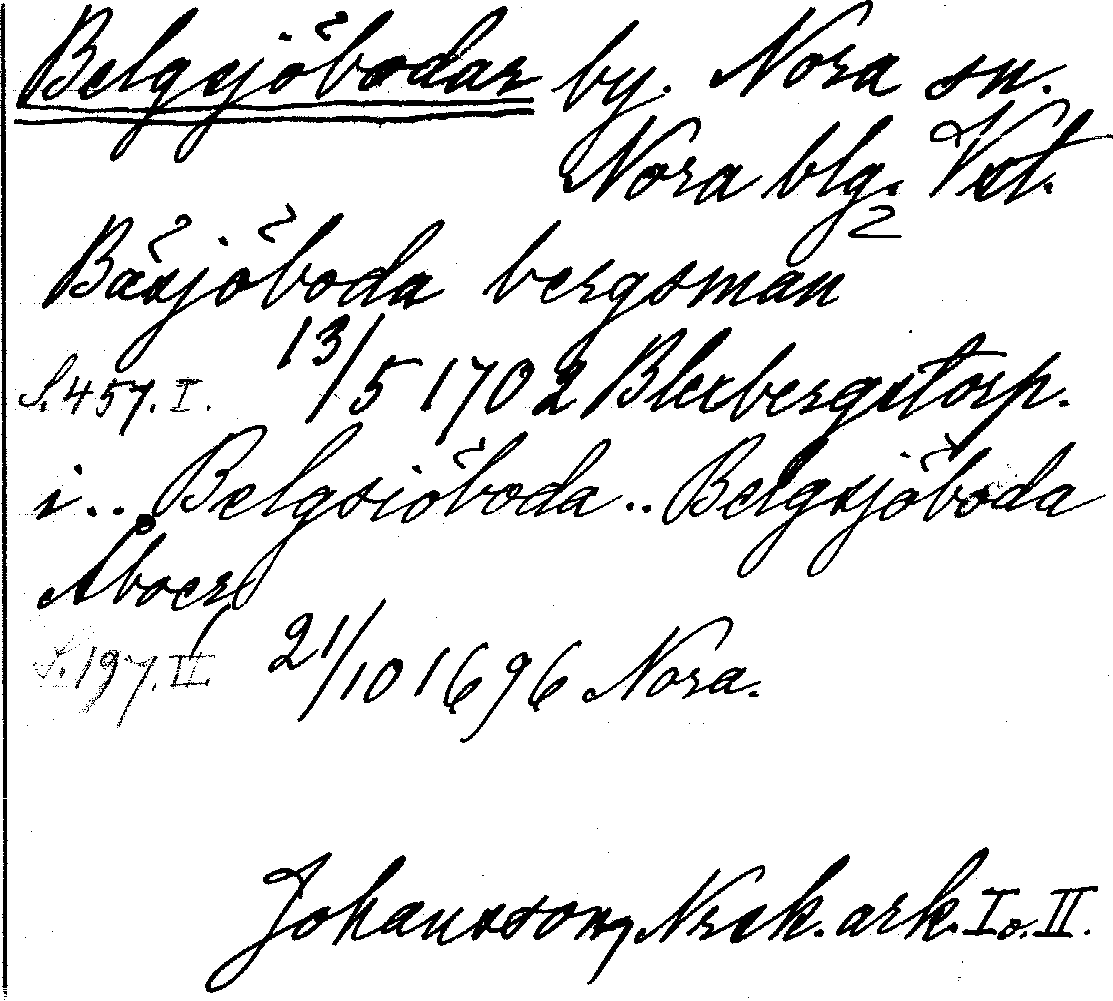 Belgsjöbodar by. Nora sn.
Nora blg. Vst.
2
Bäsjöboda bergsman
S. 457. I. 13/5 1702 Blexbergstorp.
i.. Belgsiöboda.. Belgsjöboda
Åboer
S. 197. II. 21/10 1696 Nora.
Johansson, Nrsk. ark. I o. II.